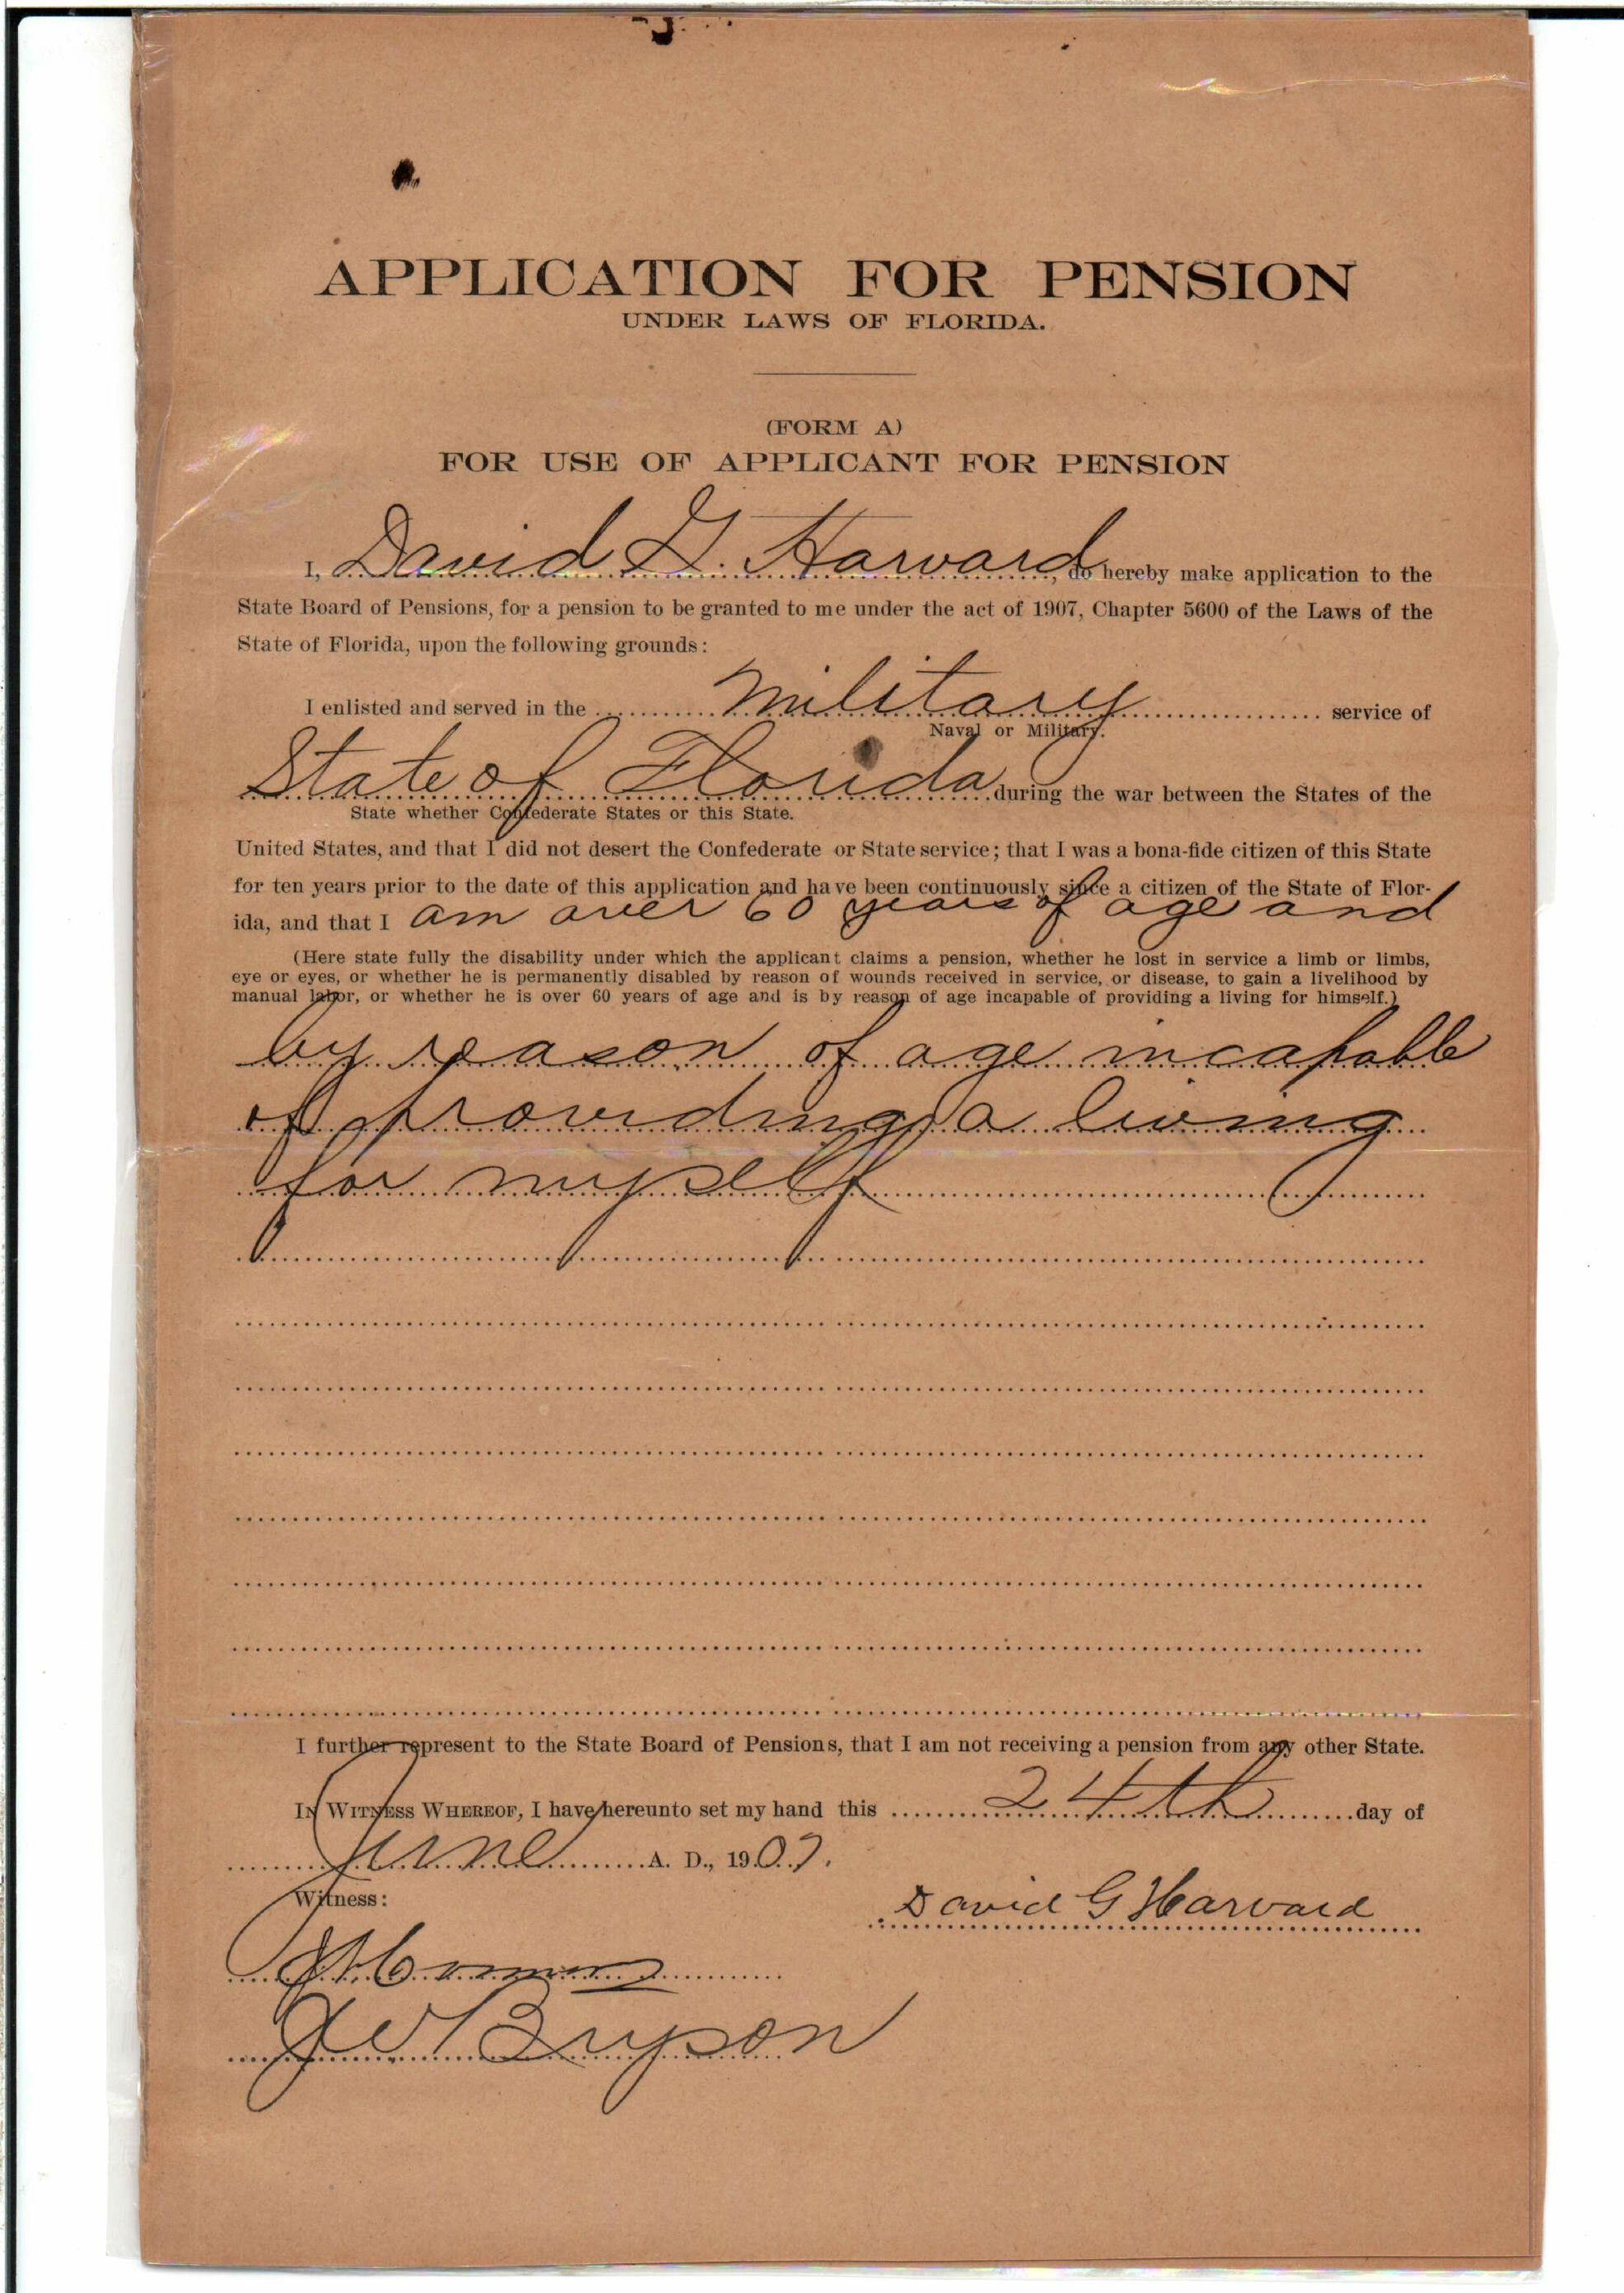 APPLICATION FOR PENSION
UNDER LAWS OF FLORIDA.
(FORM A)
FOR USE OF APPLICANT FOR PENSION
I, David G. Harvard, do hereby make application to the
State Board of Pensions, for a pension to be granted to me under the act of 1907, Chapter 5600 of the Laws of the
State of Florida, upon the following grounds:
I enlisted and served in the military service of
Naval or Military.
State of Florida during the war between the States of the
State whether Confederate States or this State.
United States, and that I did not desert the Confederate or State service; that I was a bona-fide citizen of this State
for ten years prior to the date of this application and have been continuously since a citizen of the State of Flor-
ida, and that I am over 60 years of age and
(Here state fully the disability under which the applicant claims a pension, whether he lost in service a limb or limbs,
eye or eyes, or whether he is permanently disabled by reason of wounds received in service, or disease, to gain a livelihood by
manual labor, or whether he is over 60 years of age and is by reason of age incapable of providing a living for himself.)
by reason of age incapable
of providing a living
for myself
I further represent to the State Board of Pensions, that I am not receiving a pension from any other State.
IN WITNESS WHEREOF, I have hereunto set my hand this 24th day of
June A. D., 1907.
Witness:
David G Harvard
J W Bryson